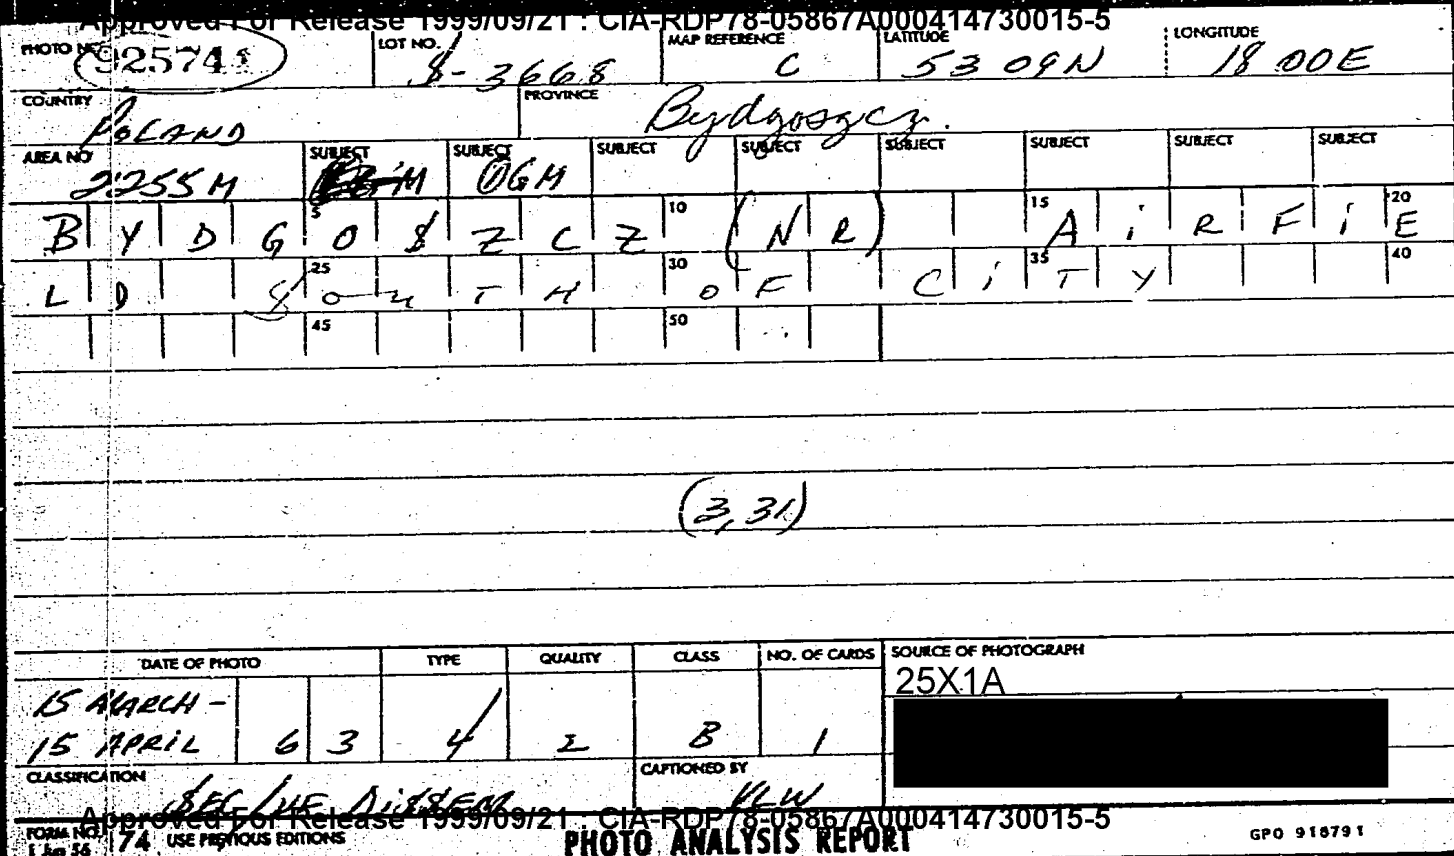 Approved For Release 1999/09/21 : CIA-RDP78-05867A000414730015-5
PHOTO NO. 925744 LOT NO. S-3668 MAP REFERENCE C LATITUDE 53 09N LONGITUDE 18 00E
COUNTRY POLAND PROVINCE Bydgoszcz.
AREA NO 2255M SUBJECT M SUBJECT OGM SUBJECT SUBJECT SUBJECT SUBJECT SUBJECT SUBJECT
BYDGOSZCZ (NR) AiRFiE 5 10 15 20
LD SOUTH OF CiTY 25 30 35 40
45 50
(3,31)
DATE OF PHOTO TYPE QUALITY CLASS NO. OF CARDS SOURCE OF PHOTOGRAPH
25X1A
15 MARCH -
15 APRiL 6 3 4 2 B 1
CLASSIFICATION CAPTIONED BY
SEC DiSSEM
Approved For Release 1999/09/21 : CIA-RDP78-05867A000414730015-5
FORM NO. 74 USE PREVIOUS EDITIONS PHOTO ANALYSIS REPORT GPO 918791
1 56